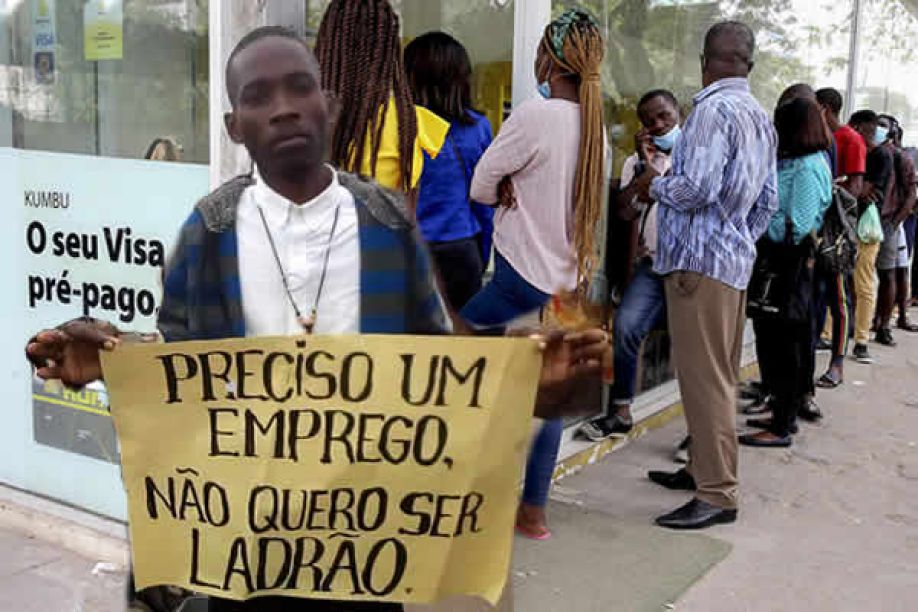 VISA
KUMBU
O seu Visa
pré-pago,
PRECISO UM
EMPREGO,
NÃO QUERO SER
LADRÃO.